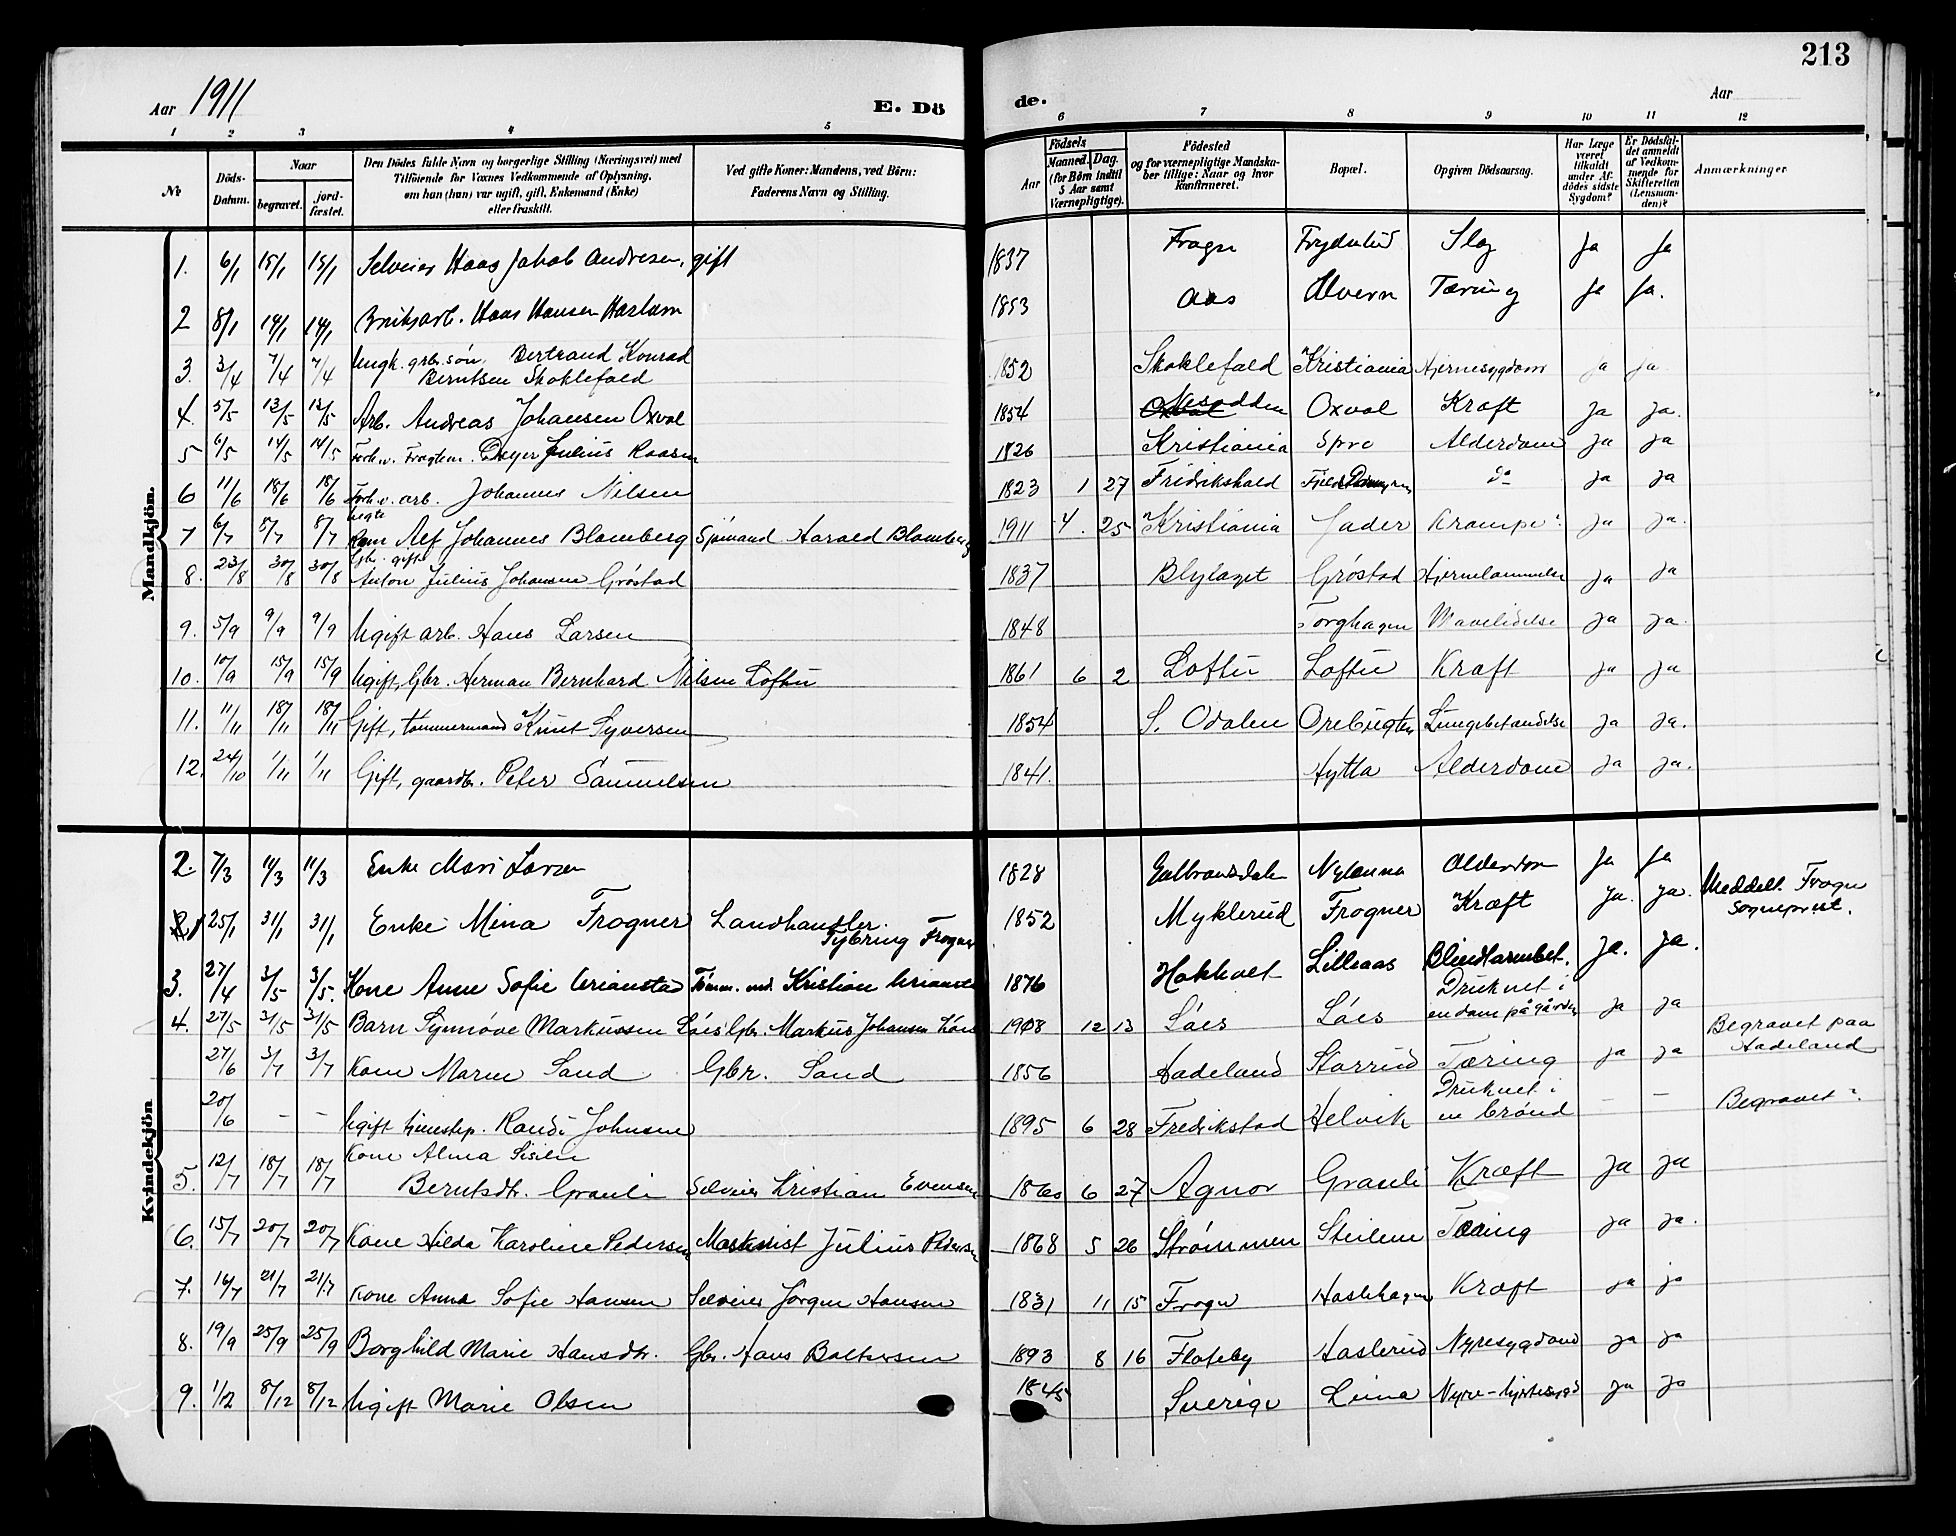 213
Aar 1911 E. Dö de. Aar
1 2 3 4 5 6 7 8 9 10 11 12
No
Döds-Datum.
Naar
begravet. jord-fæstet.
Den Dödes fulde Navn og borgerlige Stilling (Næringsvei) med
Tilføiende for Voxnes Vedkommende af Oplysning,
om han (hun) var ugift, gift, Enkemand (Enke)
eller fraskilt.
Ved gifte Koner: Mandens, ved Börn:
Faderens Navn og Stilling.
Födsels
Aar Maaned. Dag.
(for Börn indtil
5 Aar samt
Værnepligtige).
Födested
og for værnepligtige Mandska-
ber tillige: Naar og hvor
konfirmeret.
Bopæl.
Opgiven Dödsaarsag.
Har Læge
været
tilkaldt
under Af-
dödes sidste
Sygdom?
Er Dödsfal-
det anmeldt
af Vedkom-
mende for
Skifteretten
(Lensman-
den)?
Anmærkninger
Mandkjön.
1. 6/1 15/1 15/1 Selveier Hans Jakob Andresen, gift 1837 Frogn Slag Ja Ja
2 8/1 14/1 14/1 Bruksarb. Hans Hansen 1853 Aas Alvern Tæring Ja Ja.
3. 3/4 7/4 7/4 Ungk. grbr. søn, Bertrand Konrad
Berntsen Skoklefald 1852 Skoklefald Kristiania Hjernesygdom ja ja
4. 5/5 13/5 13/5 Arb. Andreas Johansen Oxval 1854 Nesodden Oxval Kræft Ja ja.
5 6/5 14/5 14/5 Forh.v. Dreyer Julius 1826 Kristiania Spro Alderdom ja ja
6 11/6 18/6 18/6 Forh.v. arb. Johannes Nilsen 1823 1 27 Fridrikshald do ja ja
7 6/7 8/7 8/7 Alf Johannes Blomberg Sjömand Harald Blomberg 1911 4. 25 Kristiania Jader Krampe? ja ja.
8. 23/8 30/8 30/8 Gbr. gift
Anton Julius Johansen Gróstad 1837 Blylaget Gróstad Hjernelammelse ja ja
9. 5/9 9/9 9/9 Ugift arb. Hans Larsen 1848 Torghagen Mavelidelse ja ja.
10. 10/9 15/9 15/9 Ugift, Gbr. Herman Bernhard Nilsen Loftu 1861 6 2 Loftu Loftu Kræft ja ja
11. 11/11 18/11 18/11 Gift, tømmermand Knut Syversen 1854 S. Odalen Orebugten Lungebetændelse ja ja.
12. 24/10 1/11 1/11 Gift, gaardbr. Peter Samuelsen 1841. Hytta Alderdom ja ja.
Kvindekjön
2. 7/3 11/3 11/3 Enke Mari Larsen 1828 Gulbrandsdalen Alderdom Ja Ja
1 25/1 31/1 31/1 Enke Mina Frogner Landhandler
Tybring Frogner 1852 Myklerud Frogner Kræft Ja. ja. Meddelt Frogn
Sogneprest.
3. 27/4 3/5 3/5. Kone Anne Sofie Urianstad Tømm. md. Kristian Urianstad 1876 Hokholt Lillraas Blindtarmbet. Ja. Ja.
4. 27/5 31/5 31/5 Barn Synnøve Markussen Lóes Gbr. Markus Johansen Lóes 1908 12 13 Lóes Lóes Druknet i
en dam på gården ja ja
27/6 3/7 3/7 Kone Maren Sand Gbr. Sand 1856 Hadeland Starrud Tæring ja ja Begravet paa
Hadeland
20/6 – – Ugift tjenestep. Randi Johnsen 1895 6 28 Fredrikstad Helvik Druknet i
en brønd – – Begravet ?
5. 12/7 18/7 18/7 Kone Alma Sisilie
Berntsdtr. Granli Selveier Kristian Evensen 1860 6 27 Agnor Granli Kræft ja ja
6. 15/7 20/7 20/7 Kone Hilda Karoline Pedersen Maskinist Julius Pedersen 1868 5 26 Strømmen Steilene Tæring ja ja.
7. 16/7 21/7 21/7 Kone Anna Sofie Hansen Selveier Jörgen Hansen 1831 11 15 Frogn Haslehagen Kræft ja ja
8. 19/9 25/9 25/9 Borghild Marie Hansdtr. Gbr. Hans Baltersen 1893 8 16 Flateby Haslerud Nyresygdom ja ja
9. 1/12 8/12 8/12 Ugift Marie Olsen 1845 Sverige Luna ja ja